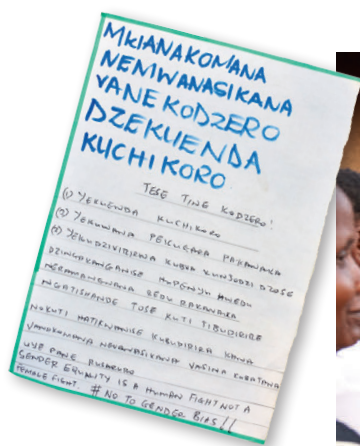 MKIANAKOMANA
NEMWANASIKANA
VANE KODZERO
DZEKUENDA
KUCHIKORO
TESE TINE KODZERO!
(1) YEKUENDA KUCHIKORO
(2) YEKUWANA PEKUGARA PAKANAKA
(3) YEKUDZIVIRIRWA KUBVA KUNJODZI DZOSE
DZINOKANGANISE HUPENYU HWEDU
NERAMANGWANA REDU RAKANAKA
NGATISHANDE TOSE KUTI TIBUDIRIRE
NOKUTI HATIKWANISE KUBUDIRIRA KANA
VAKOMANA NEVANASIKANA VASINA KUBATANA
UYE PANE RUSARURO
GENDER EQUALITY IS A HUMAN FIGHT NOT A
FEMALE FIGHT. # NO TO GENDER BIAS!!